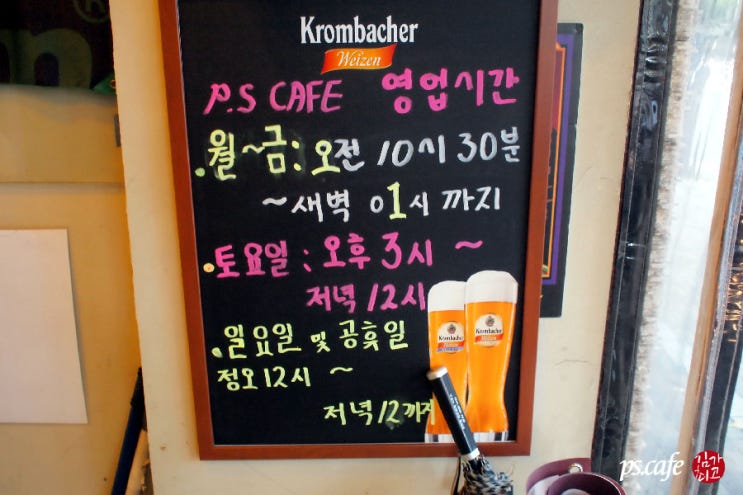 Krombacher
Weizen
P.S CAFE 영업시간
. 월~금: 오전 10시 30분
~ 새벽 01시 까지
. 토요일 : 오후 3시 ~
저녁 12시
. 일요일 및 공휴일
정오 12시 ~
저녁 12까지
Krombacher
Krombacher
ps.cafe